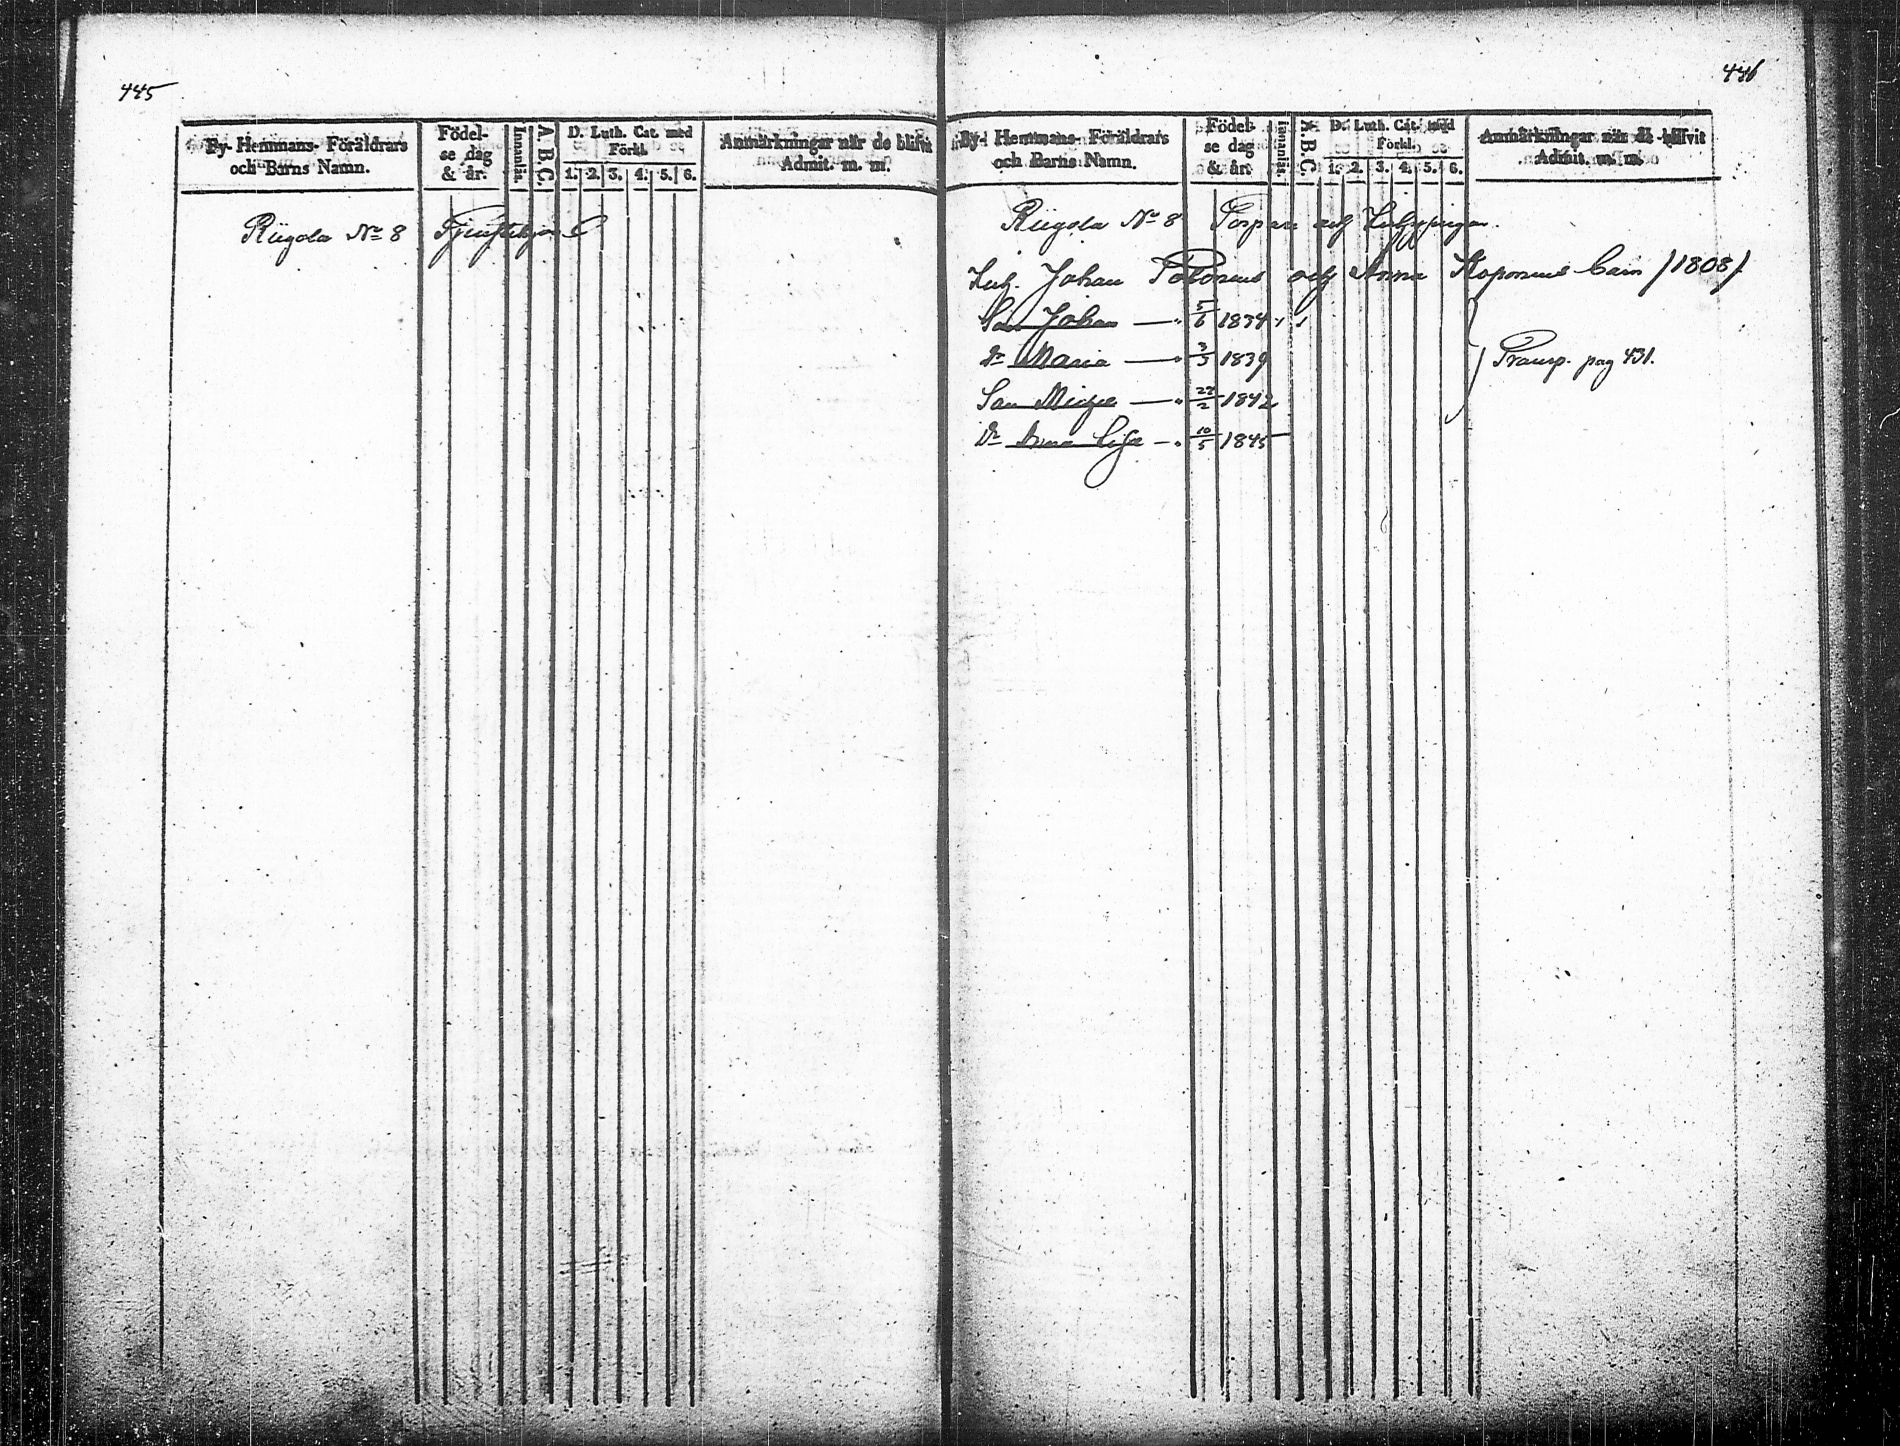 445
By- Hemmans- Föräldrars
och Barns Namn.
Födel-
se dag
& år.
Innanläs.
A. B. C.
D. Luth. Cat. med
Förkl.
1. 2. 3. 4. 5. 6.
Anmärkningar när de blifvit
Admit. m. m.
Riigola No 8
446
By- Hemmans- Föräldrars
och Barns Namn.
Födel-
se dag
& år.
Innanläs.
A. B. C.
D. Luth. Cat. med
Förkl.
1. 2. 3. 4. 5. 6.
Anmärkningar när de blifvit
Admit. m. m.
Riigola No 8 Torpare och
Johan och Anna Koponens Barn /1808/
Son Johan — " 5/6 1834
Dr Maria — " 3/3 1839
Son — " 22/2 1842
Dr Anna Lisa — " 10/5 1845
Transp. pag 431.